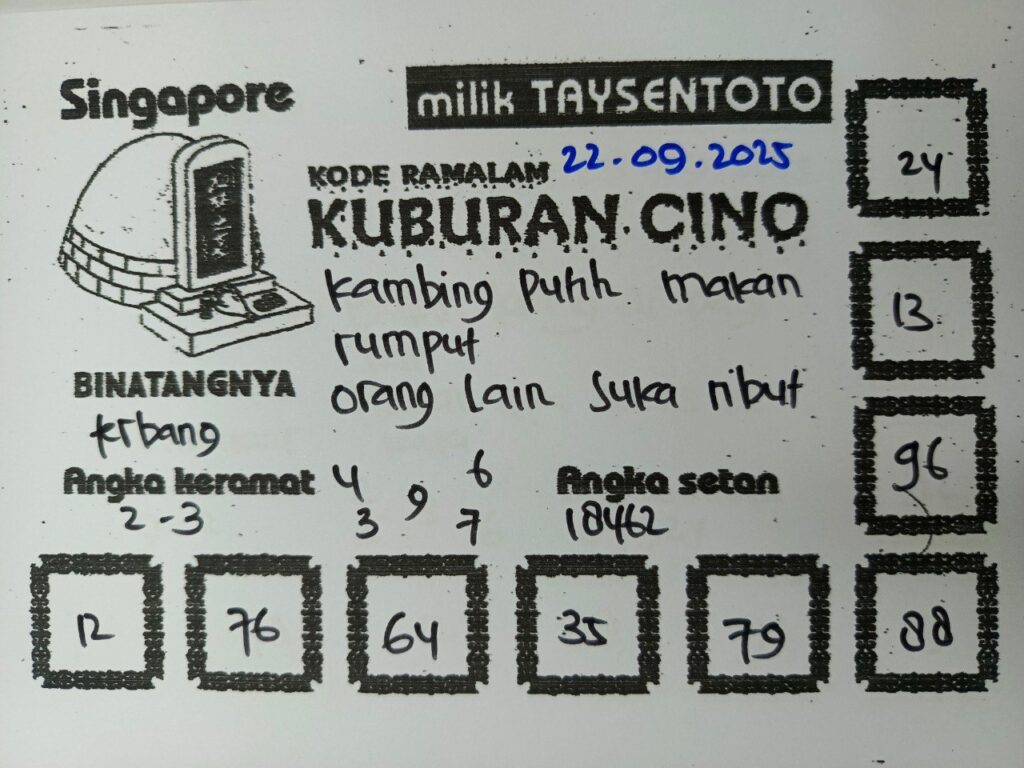 Singapore
milik TAYSENTOTO
KODE RAMALAM 22.09.2025
KUBURAN CINO
kambing putih makan
rumput
orang lain suka ribut
BINATANGNYA
krbang
Angka keramat
2-3
4 6
9
3 7
Angka setan
18462
24
13
96
12 76 64 35 79 88